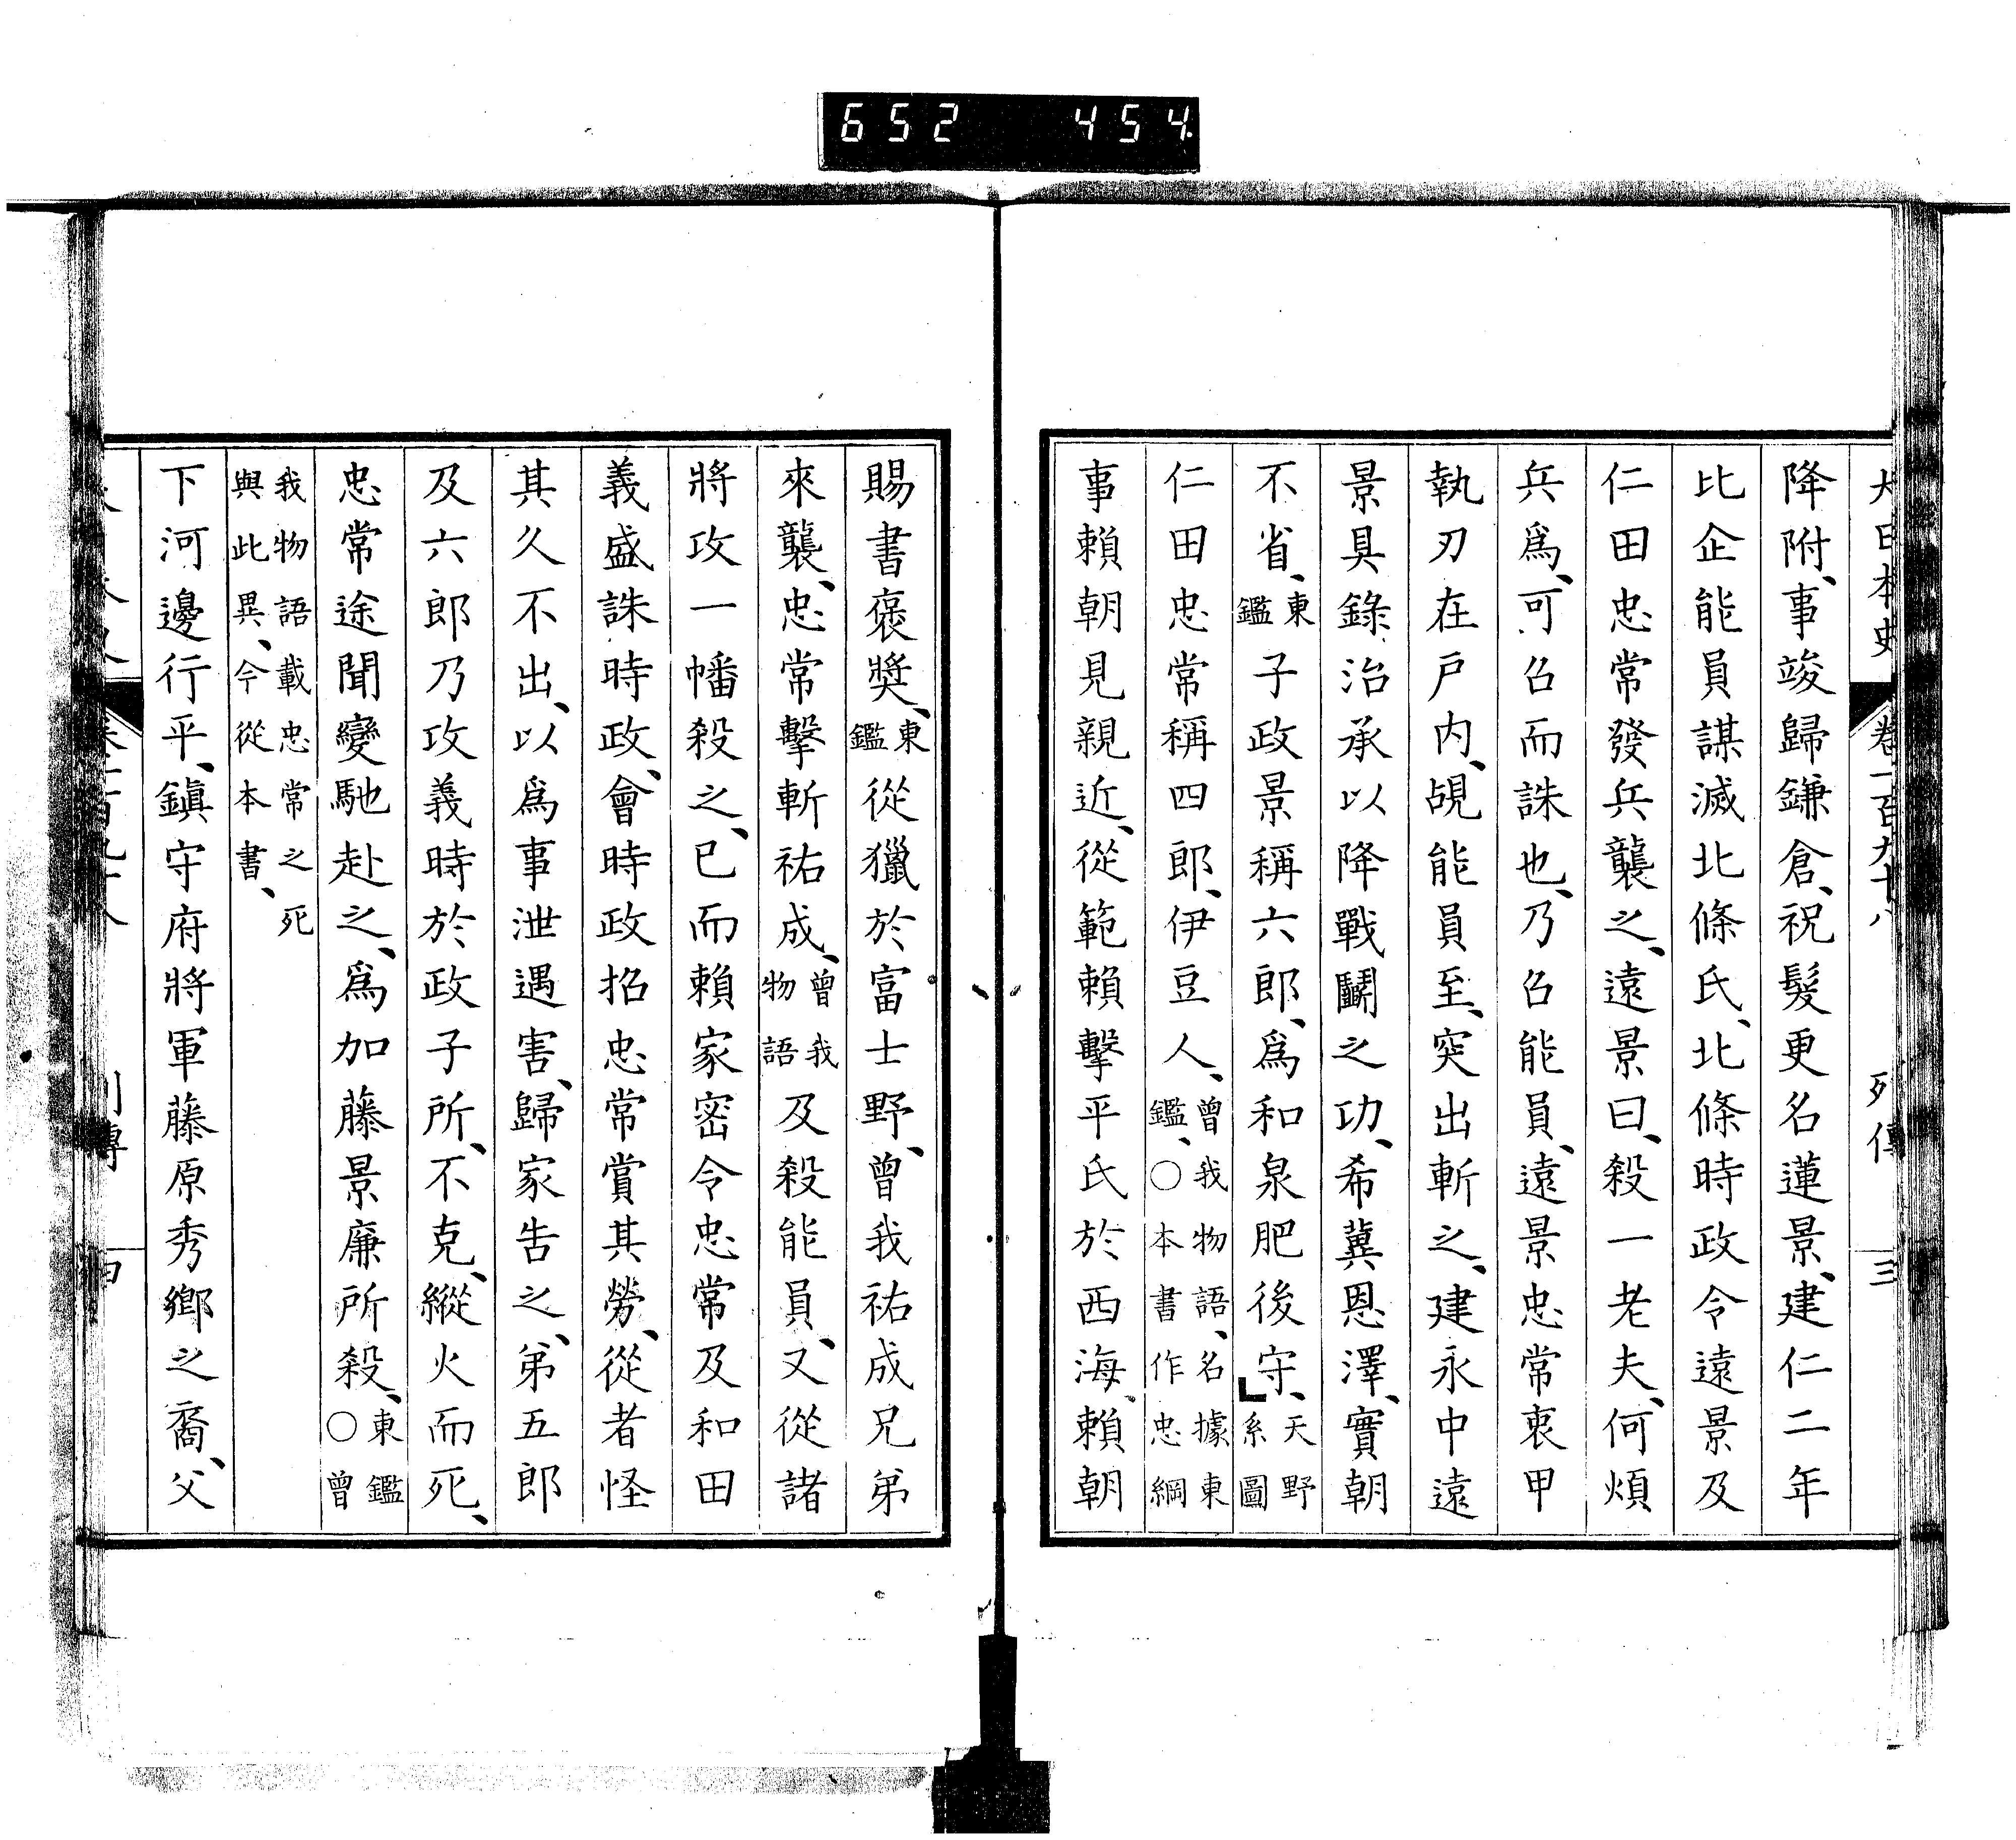 652 454
大日本史 卷一百九十八 列傳 三
降附、事竣歸鎌倉、祝髮更名蓮景、建仁二年
比企能員謀滅北條氏、北條時政令遠景及
仁田忠常發兵襲之、遠景曰、殺一老夫、何煩
兵爲、可召而誅也、乃召能員、遠景忠常衷甲
執刃在戸内、覘能員至、突出斬之、建永中遠
景具錄治承以降戰鬪之功、希冀恩澤、實朝
不省、東鑑子政景稱六郎、爲和泉肥後守、天野系圖
仁田忠常稱四郎、伊豆人、曾我物語、名據東鑑、○本書作忠綱
事賴朝見親近、從範賴擊平氏於西海、賴朝
賜書褒奬、東鑑從獵於富士野、曾我祐成兄弟
來襲、忠常擊斬祐成、曾我物語及殺能員、又從諸
將攻一幡殺之、已而賴家密令忠常及和田
義盛誅時政、會時政招忠常賞其勞、從者怪
其久不出、以爲事泄遇害、歸家告之、弟五郎
及六郎乃攻義時於政子所、不克、縱火而死、
忠常途聞變馳赴之、爲加藤景廉所殺、東鑑○曾
我物語載忠常之死與此異、今從本書、
下河邊行平、鎭守府將軍藤原秀鄉之裔、父